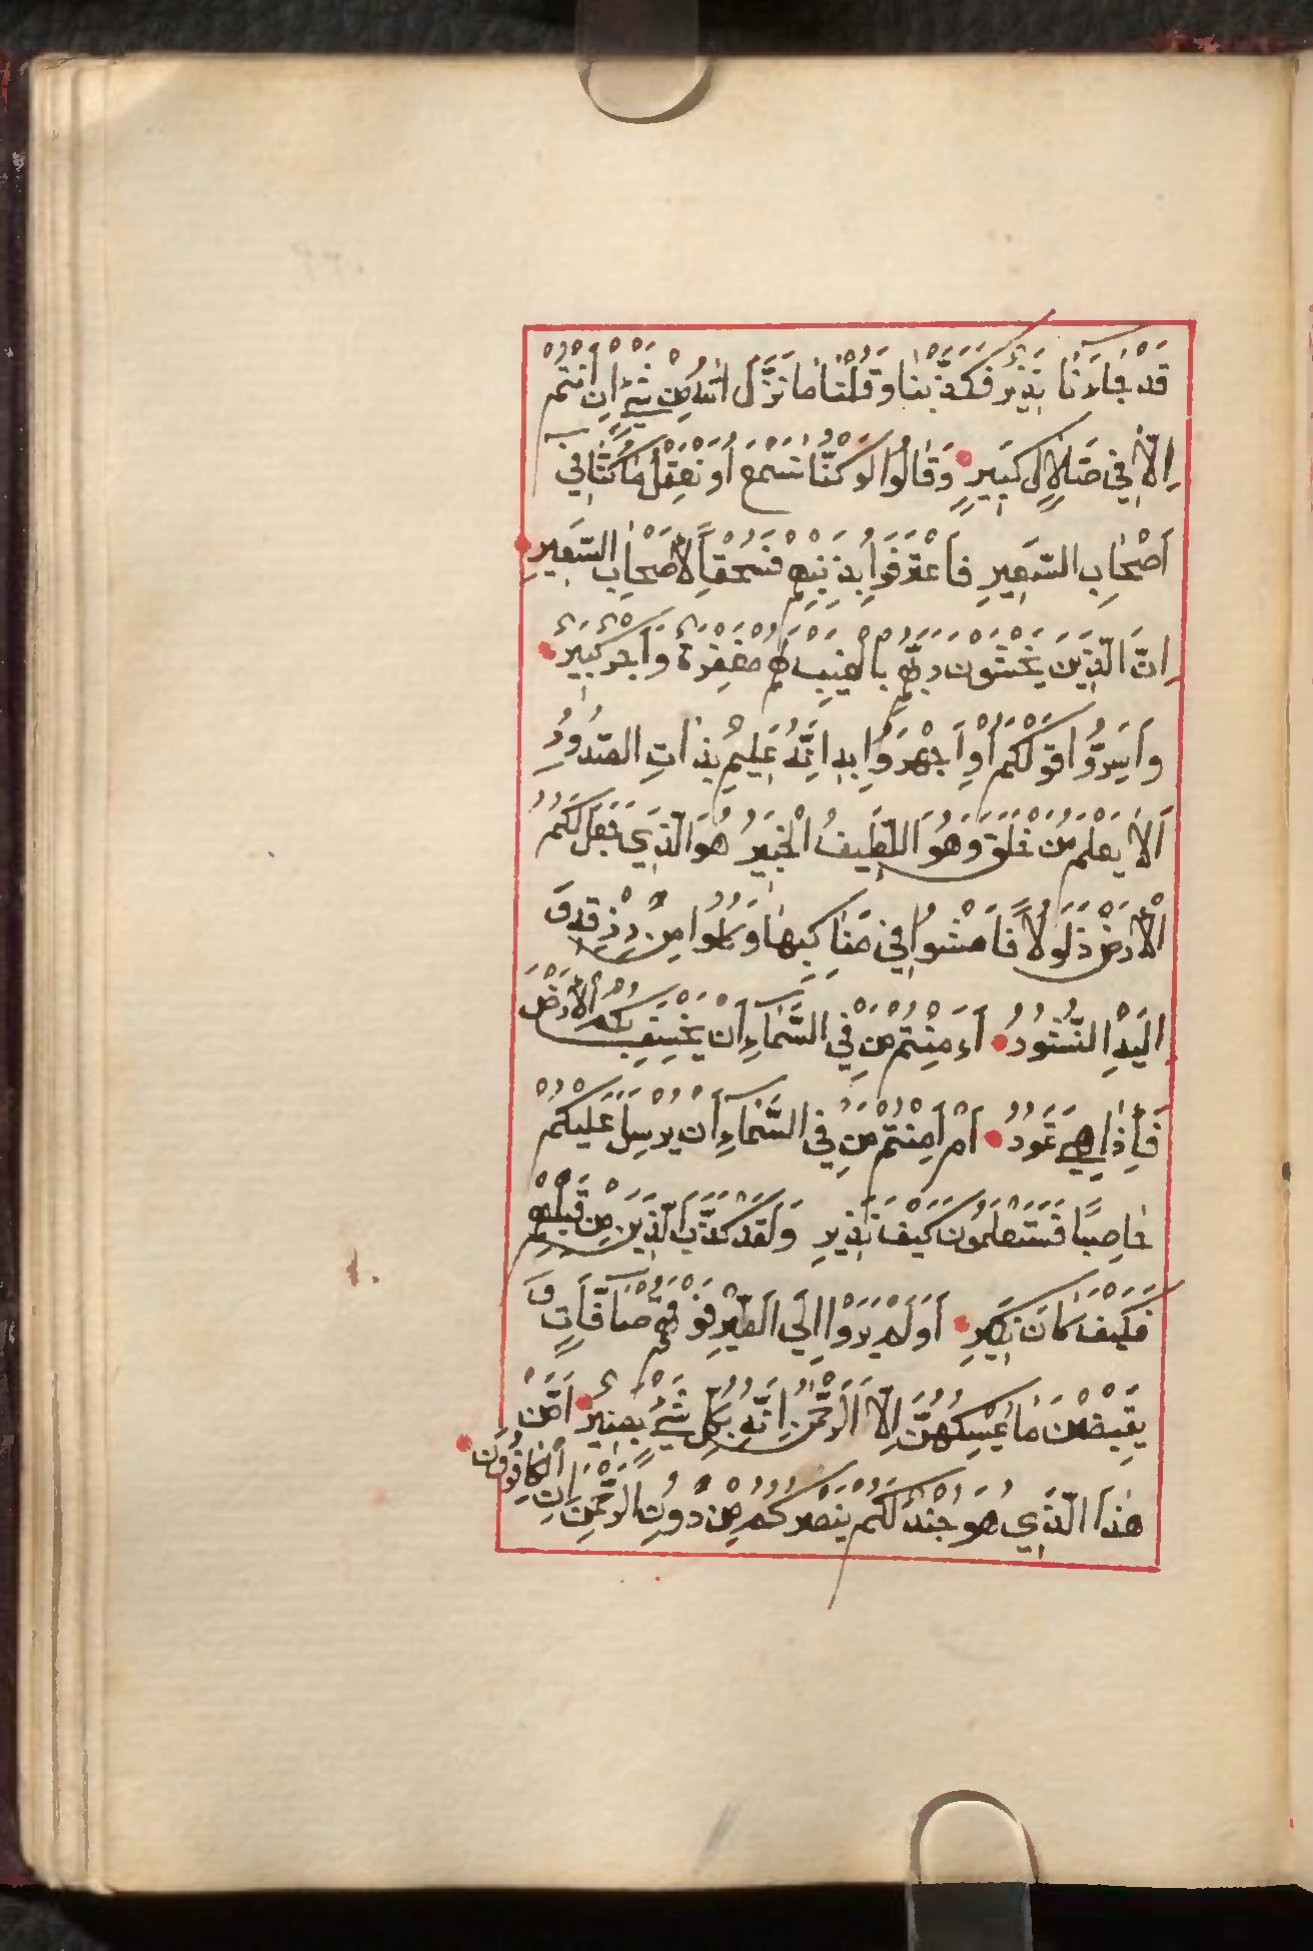 قَدْ جَاءَنَا نَذِيرٌ فَكَذَّبْنَا وَقُلْنَا مَا نَزَّلَ اللَّهُ مِنْ شَيْءٍ اِنْ اَنْتُمْ
اِلَّا فِي ضَلَالٍ كَبِيرٍ وَقَالُوا لَوْ كُنَّا نَسْمَعُ اَوْ نَعْقِلُ مَا كُنَّا فِي
اَصْحَابِ السَّعِيرِ فَاعْتَرَفُوا بِذَنْبِهِمْ فَسُحْقًا لِاَصْحَابِ السَّعِيرِ
اِنَّ الَّذِينَ يَخْشَوْنَ رَبَّهُمْ بِالْغَيْبِ لَهُمْ مَغْفِرَةٌ وَاَجْرٌ كَبِيرٌ
وَاَسِرُّوا قَوْلَكُمْ اَوِ اجْهَرُوا بِهِ اِنَّهُ عَلِيمٌ بِذَاتِ الصُّدُورِ
اَلَا يَعْلَمُ مَنْ خَلَقَ وَهُوَ اللَّطِيفُ الْخَبِيرُ هُوَ الَّذِي جَعَلَ لَكُمُ
الْاَرْضَ ذَلُولًا فَامْشُوا فِي مَنَاكِبِهَا وَكُلُوا مِنْ رِزْقِهِ وَ
اِلَيْهِ النُّشُورُ ءَاَمِنْتُمْ مَنْ فِي السَّمَاءِ اَنْ يَخْسِفَ بِكُمُ الْاَرْضَ
فَاِذَا هِيَ تَمُورُ اَمْ اَمِنْتُمْ مَنْ فِي السَّمَاءِ اَنْ يُرْسِلَ عَلَيْكُمْ
حَاصِبًا فَسَتَعْلَمُونَ كَيْفَ نَذِيرِ وَلَقَدْ كَذَّبَ الَّذِينَ مِنْ قَبْلِهِمْ
فَكَيْفَ كَانَ نَكِيرِ اَوَلَمْ يَرَوْا اِلَى الطَّيْرِ فَوْقَهُمْ صَافَّاتٍ وَ
يَقْبِضْنَ مَا يُمْسِكُهُنَّ اِلَّا الرَّحْمٰنُ اِنَّهُ بِكُلِّ شَيْءٍ بَصِيرٌ اَمَّنْ
هٰذَا الَّذِي هُوَ جُنْدٌ لَكُمْ يَنْصُرُكُمْ مِنْ دُونِ الرَّحْمٰنِ اِنِ الْكَافِرُونَ